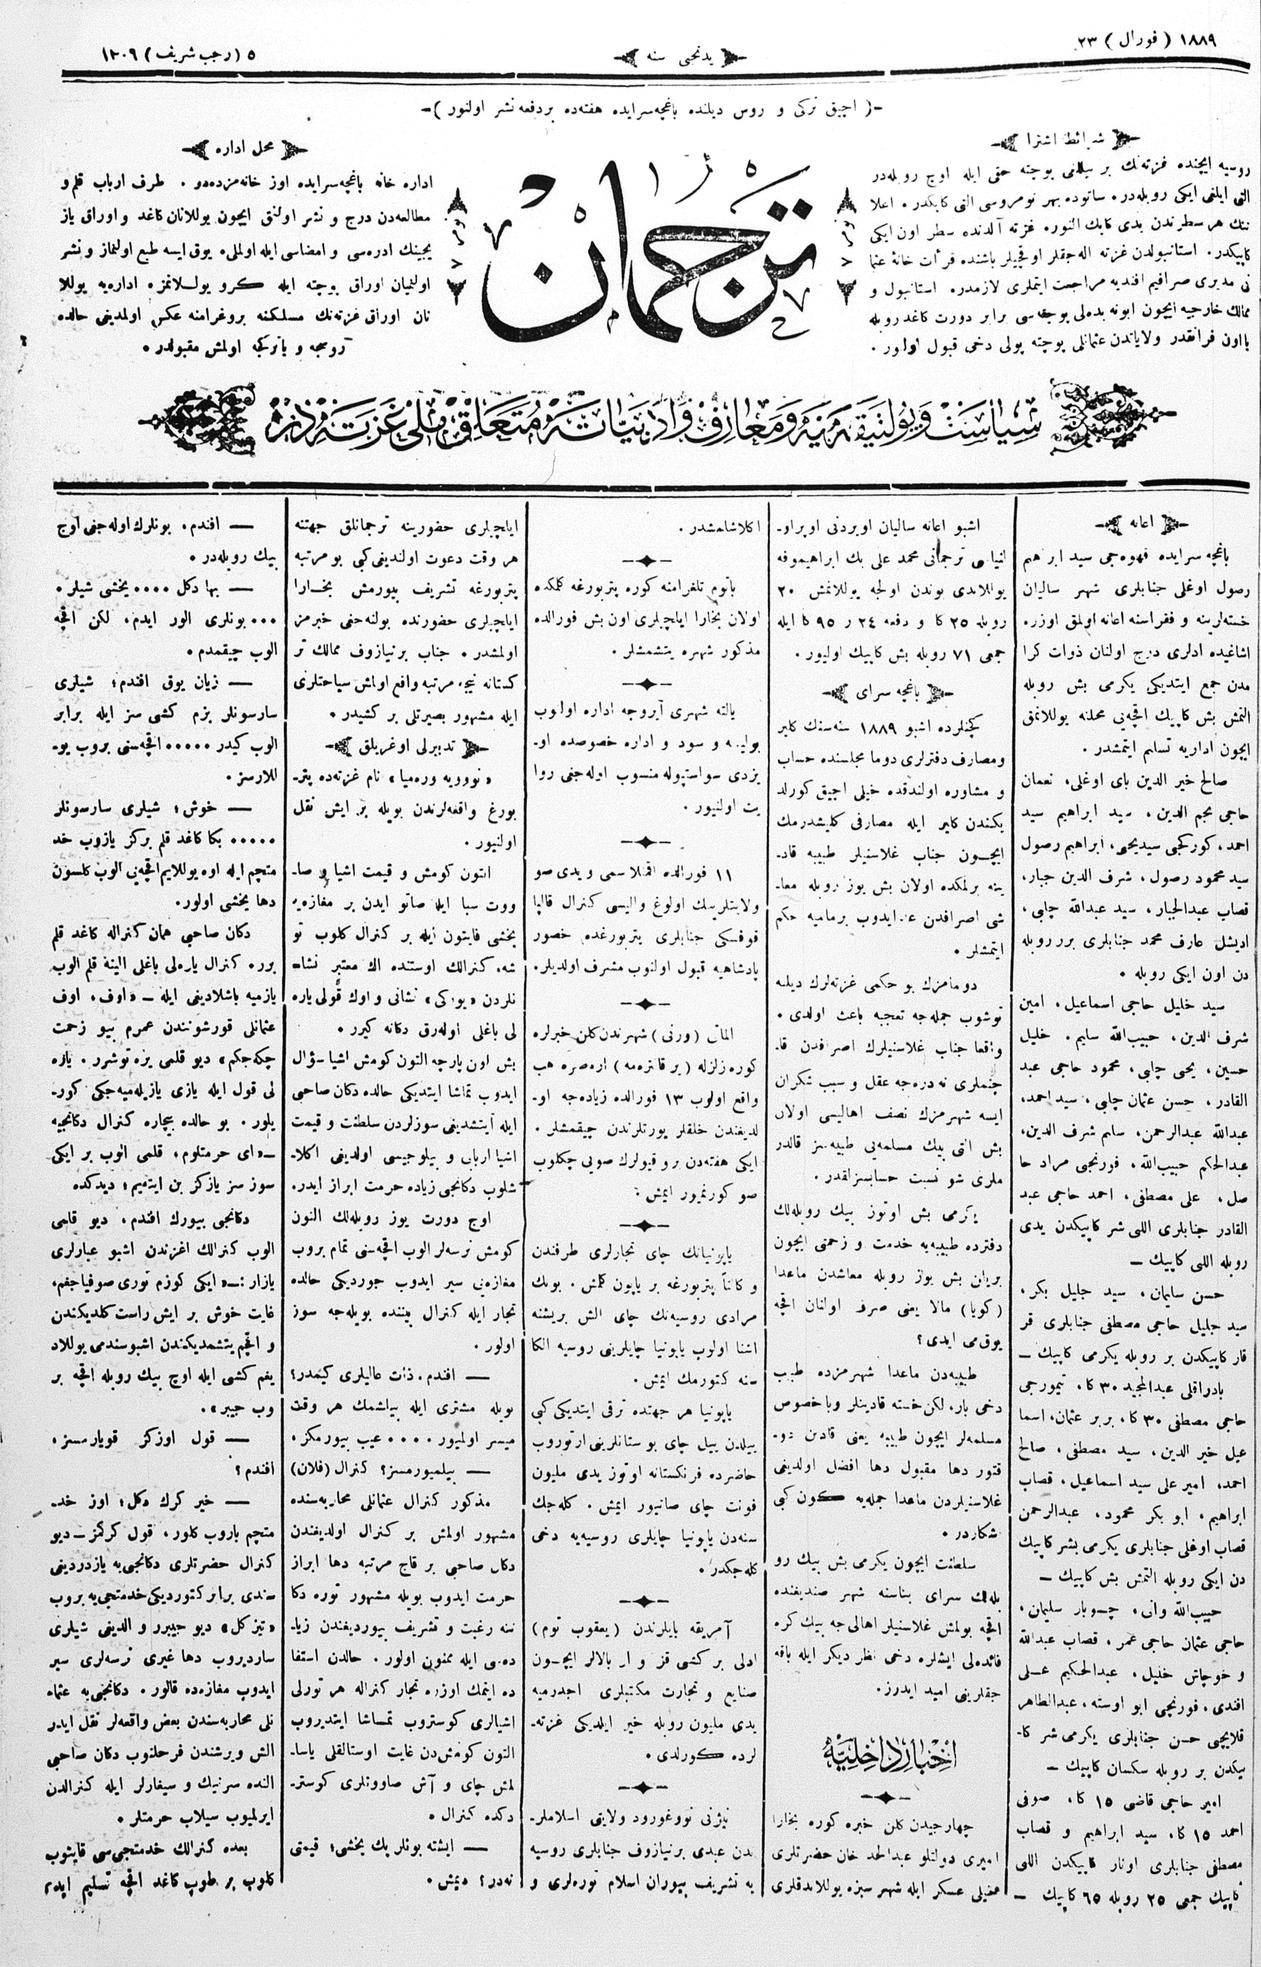 ١٨٨٩ ( فورال ) ٢٣
يدنجی سنه
٥ ( رجب شريف ) ١٣٠٦
-( اچيق تركی و روس ديلنده باغچه‌سرايده هفته‌ده بردفعه نشر اولنور )-
شرائط اشترا
روسيه ايچنده غزته‌نك بر ييللغی پوچته حقی ايله اوچ روبله‌در
التی ايلغی ايكی روبله‌در. ساتوده بهر نومروسی التی كاپكدر. اعلا
ننك هر سطرندن يدی كاپك النور. غزته آلدنده سطر اون ايكی
كاپيكدر. استانبولدن غزته اله‌جقلر اوقجيلر باشنده قرأت خانۀ عثما
نی مديری صرافيم افنديه مراجعت ايتملری لازمدر. استانبول و
ممالك خارجيه ايچون ابونه بدلی پوچه‌سی برابر دورت كاغد روبله
يااون فرانقدر ولاياتدن عثمانلی پوچته پولی دخی قبول اولور.
ترجمان
محل اداره
اداره خانه باغچه‌سرايده اوز خانه‌مزده‌دو. طرف ارباب قلم و
مطالعه‌دن درج و نشر اولنق ايچون يوللانان كاغد و اوراق ياز
يجينك ادره‌سی و امضاسی ايله اولملی. يوق ايسه طبع اولنماز و نشر
اولنميان اوراق پوچته ايله كرو يوللانمز. اداره‌يه يوللا
نان اوراق غزته‌نك مسلكنه پروغرامنه عكس اولمدينی حالده
روسجه و ياتركيه اولمش مقبولدر.
سياست و پولتيقه‌يه و معارف و ادبياته متعلق ملی غزته‌در
اعانه
باغچه سرايده قهوه‌جی سيد ابراهيم
رسول اوغلی جنابلری شهر ساليان
خسته‌لرينه و فقراسنه اعانه اولمق اوزر.
اشاغيده ادلری درج اولنان ذوات كرا
مدن جمع ايتديكی يكرمی بش روبله
التمش بش كاپيك اقچه‌یی محلنه يوللانمق
ايچون اداريه تسليم ايتمشدر.
صالح خير الدين بای اوغلی، نعمان
حاجی نجم الدين، سيد ابراهيم سيد
احمد، كوركجی سيديحيی، ابراهيم رصول
سيد محمود رصول، شرف الدين جبار،
قصاب عبدالجبار، سيد عبدالله چلبی،
اديشل عارف محمد جنابلری برر روبله
دن اون ايكی روبله.
سيد خليل حاجی اسماعيل، امين
شرف الدين، حبيب‌الله سليم، خليل
حسين، يحيی چلبی، محمود حاجی عبد
القادر، حسن عثمان چلبی، سيد احمد،
عبدالله عبدالرحمن، سليم شرف الدين،
عبدالحكم حبيب‌الله، فورنجی مراد حا
صل، علی مصطفی، احمد حاجی عبد
القادر جنابلری اللی شر كاپيكدن يدی
روبله اللی كاپيك —
حسن سليمان، سيد جليل بكر،
سيد جليل حاجی مصطفی جنابلری قر
قار كاپيكدن بر روبله يكرمی كاپيك —
بادراقلی عبدالمجيد ٣٠ كا، تيمورجی
حاجی مصطفی ٣٠ كا، بربر عثمان، اسما
عيل خير الدين، سيد مصطفی، صالح
احمد، امير علی سيد اسماعيل، قصاب
ابراهيم، ابو بكر محمود، عبدالرحمن
قصاب اوغلی جنابلری يكرمی بشر كاپيك
دن ايكی روبله التمش بش كاپيك —
حبيب‌الله وانی، چوبار سليمان،
حاجی عثمان حاجی عمر، قصاب عبدالله
و خوچاش خليل، عبدالحكيم علی
افندی، فورنجی ابو اوسته، عبدالطاهر
قلايجی حسن جنابلری يكرمی شر كا-
پيكدن بر روبله سكسان كاپيك —
امير حاجی قاضی ١٥ كا، صوفی
احمد ١٥ كا، سيد ابراهيم و قصاب
مصطفی جنابلری اونار كاپيكدن اللی
كاپيك جمعی ٢٥ روبله ٦٥ كاپيك —
اشبو اعانه ساليان اوبردنی اوبراو-
لنيا ی ترجمانی محمد علی بك ابراهيموفه
يوللاندی بوندن اولجه يوللانمش ٢٠
روبله ٢٥ كا و دفعه ٢٤ ر ٩٥ كا ايله
جمعی ٧١ روبله بش كاپيك اوليور.
باغچه سرای
كچنلرده اشبو ١٨٨٩ سنه‌سنك كلير
ومصارف دفترلری دوما مجلسنده حساب
و مشاوره اولندقده خيلی اچيق كورلد
يكندن كلير ايله مصارفی كليشدرمك
ايچون جناب غلاسنيلر طبيبه قاد-
ينه برلمكده اولان بش يوز روبله معا-
شی اصرافدن عد ايدوب برماميه حكم
ايتمشلر.
دومامزك بو حكمی غزته‌لرك ديلنه
توشوب جمله‌جه تعجبه باعث اولدی.
واقعا جناب غلاسنيلرك اصرافدن قا-
چنملری نه درجه عقل و سبب شكران
ايسه شهرمزك نصف اهاليسی اولان
بش التی بيك مسلمه‌یی طبيبه‌سز قالدر
ملری شو نسبت حسابسزلقدر.
يكرمی بش اوتوز بيك روبله‌لك
دفترده طبيبه‌يه خدمت و زحمتی ايچون
بريلان بش يوز روبله معاشدن ماعدا
(كويا) مالا يعنی صرف اولنان اقچه
يوق‌می ايدی؟
طبيبه‌دن ماعدا شهرمزده طبيب
دخی بار، لكن خسته قادينلر وباخصوص
مسلمه‌لر ايچون طبيبه يعنی قادين دو-
قتور دها مقبول دها افضل اولدينی
غلاسنيلردن ماعدا جمله‌يه كون كبی
اشكاردر.
سلطنت ايچون يكرمی بش بيك رو
بله‌لك سرای بناسنه شهر صنديغنده
اقچه بولمش غلاسنيلر اهالی‌جه بيك كره
فائده‌لی ايشلره دخی نظر ديكر ايله باقه
جقلرينی اميد ايدرز.
اخبار داخليه
چهارجيدن كلن خبره كوره بخارا
اميری دولتلو عبدالاحد خان حضرتلری
خفيلی عسكر ايله شهر سبزه يوللاندقلری
اكلاشلمشدر.
باتوم تلغرامنه كوره پتربورغه كلمكده
اولان بخارا ايلچيلری اون بش فورالده
مذكور شهره يتشمشلر.
يالته شهری آيروچه اداره اولوب
پوليته و سود و اداره خصوصده او-
يزدی سواستپوله منسوب اوله‌جنی روا
يت اولنيور.
١١ فورالده اقملا سمی ويدی صو
ولايتلرينك اولوغ واليسی كنرال قالپا
قوفسكی جنابلری پتربورغده حضور
پادشاهيه قبول اولنوب مشرف اولديلر.
الماتی (ورنی) شهرندن كلن خبرلره
كوره زلزله (بر قانزمه) اره‌صره هب
واقع اولوب ١٣ فورالده زياده‌جه او-
لديغندن خلقلر يورتلرندن چيقمشلر.
ايكی هفته‌دن برو قيولرك صوبی چكلوب
صو كورنميور ايمش.
ياپونيانك چای تجارلری طرفندن
وكالتا پتربورغه بر ياپون كلمش. بونك
مرادی روسيه‌نك چای الش بريشنه
اشنا اولوب ياپونيا چايلرينی روسيه الكا
سنه كتورمك ايمش.
ياپونيا هر جهتده ترقی ايتديكی كبی
ييلدن ييل چای بوستانلرينی ارتوروب
حاضرده فرنكستانه اوتوز يدی مليون
فونت چای صاتيور ايمش. كله‌جك
سنه‌دن ياپونيا چايلری روسيه‌يه دخی
كله‌جكدر.
آمريقه بايلرندن (يعقوب توم)
ادلی بر كشی قز و ار بالالر ايچون
صنايع و تجارت مكتبلری اچدرميه
يدی مليون روبله خير ايلديكی غزته-
لرده كورلدی.
نيژنی نووغورود ولايتی اسلاملر-
ندن عبدی برنيازوف جنابلری روسيه
يه تشريف بيوران اسلام توره‌لری و
ايلچيلری حضورينه ترجمانلق جهتنه
هر وقت دعوت اولندينی كبی بو مرتبه
پتربورغه تشريف بيورمش بخارا
ايلچيلری حضورنده بولنه‌جنی خبرمز
اولمشدر. جناب برنيازوف ممالك تر
كستانه نيچه مرتبه واقع اولمش سياحتلری
ايله مشهور بصيرتلی بر كشيدر.
تدبيرلی اوغريلق
«نوويه وره‌ميا» نام غزته‌ده پتر-
بورغ واقعه‌لرندن بويله بر ايش نقل
اولنيور.
التون كومش و قيمت اشيا و صا-
ووت سبا ايله صاتو ايدن بر مغازه‌يه
يخشی فايتون ايله بر كنرال كلوب تو
شه، كنرالك اوستنده اك معتبر نشا-
نلردن «يوركی» نشانی و اوك قولی ياره
لی باغلی اوله‌رق دكانه كيرر.
بش اون پارچه التون كومش اشيا سؤال
ايدوب تماشا ايتديكی حالده دكان صاحبی
ايله آيتشديغی سوزلردن سلطنت و قيمت
اشيا اربابی و بيلوجيسی اولدينی اكلا-
شلوب دكانجی زياده حرمت ابراز ايدر.
اوچ دورت يوز روبله‌لك التون
كومش نرسه‌لر الوب اقچه‌سنی تمام بروب
مغازه‌یی سير ايدوب جورديكی حالده
تجار ايله كنرال بيننده بويله‌جه سوز
اولور.
— افندم، ذات عاليلری كيمدر؟
بويله مشتری ايله بياشمك هر وقت
ميسر اولميور.... عيب بيورمكز.
— بيلميورمسز؟ كنرال (فلان)
مذكور كنرال عثمانلی محاربه‌سنده
مشهور اولمش بر كنرال اولديغندن
دكان صاحبی بر قاچ مرتبه دها ابراز
حرمت ايدوب بويله مشهور توره دكا
ننه رغبت و تشريف بيورديغندن زيا-
ده‌سی ايله ممنون اولور. حالدن استفا
ده ايتمك اوزره تجار كنراله هر تورلی
اشيالری كوستروب تماشا ايتديروب
التون كومش‌دن غايت اوستالقلی ياسا-
لمش چای و آش صاووتلری كوستر-
دكده كنرال.
— ايشته بونلر پك يخشی؛ قيمتی
نه‌در؟ ديمش.
— افندم، بونلرك اوله‌جنی اوچ
بيك روبله‌در.
— بها دكل .... يخشی شيلر.
... بونلری الور ايدم، لكن اقچه
الوب چيقمدم.
— زيان يوق افندم؛ شيلری
سارسونلر بزم كشی سز ايله برابر
الوب كيدر ..... اقچه‌سنی بروب يو-
للارسز.
— خوش؛ شيلری سارسونلر
..... بكا كاغد قلم بركز يازوب خد
متچم ايله اوه يوللايم اقچه‌یی الوب كلسون
دها يخشی اولور.
دكان صاحبی همان كنراله كاغد قلم
برر. كنرال ياره‌لی باغلی النه قلم الوب
يازميه باشلادينی ايله — «اوف، اوف
عثمانلی قورشونندن عمرم بيو زحمت
چكه‌جكم» ديو قلمی يزه توشرر. ياره
لی قول ايله يازی يازيله‌ميه‌جكی كور-
يلور. بو حالده بيچاره كنرال دكانجيه
— «ای حرمتلوم، قلمی الوب بر ايكی
سوز سز يازكز بن ايتيم؛ ديدكده
دكانجی بيورك افندم، ديو قلمی
الوب كنرالك اغزندن اشبو عبارلری
يازار: — «ايكی كوزم توری صوفياجغم،
غايت خوش بر ايش راست كلديكندن
و اقچم يتشمديكندن اشبوسندمی يوللاد
يغم كشی ايله اوچ بيك روبله اقچه بر
وب جيبر».
— قول اوزكز قويارسز،
افندم؟
— خير كرك دكل؛ اوز خد-
متچم باروب كلور، قول كركمز — ديو
كنرال حضرتلری دكانجی‌يه يازدردينی
سندی برابر كتورديكی خدمتجی‌يه بروب
«تيز كل» ديو جيبرر و الدينی شيلری
سارديروب دها غيری نرسه‌لری سير
ايدوب مغازه‌ده قالور. دكانجی‌يه عثما
نلی محاربه‌سندن بعض واقعه‌لر نقل ايدر
الش ويرشندن فرحلنوب دكان صاحبی
النده سرنيك و سيغارلر ايله كنرالدن
ايرلميوب سيلاب حرمتلر.
بعده كنرالك خدمتجی‌سی قايتوب
كلوب بر طوب كاغد اقچه تسليم ايدر